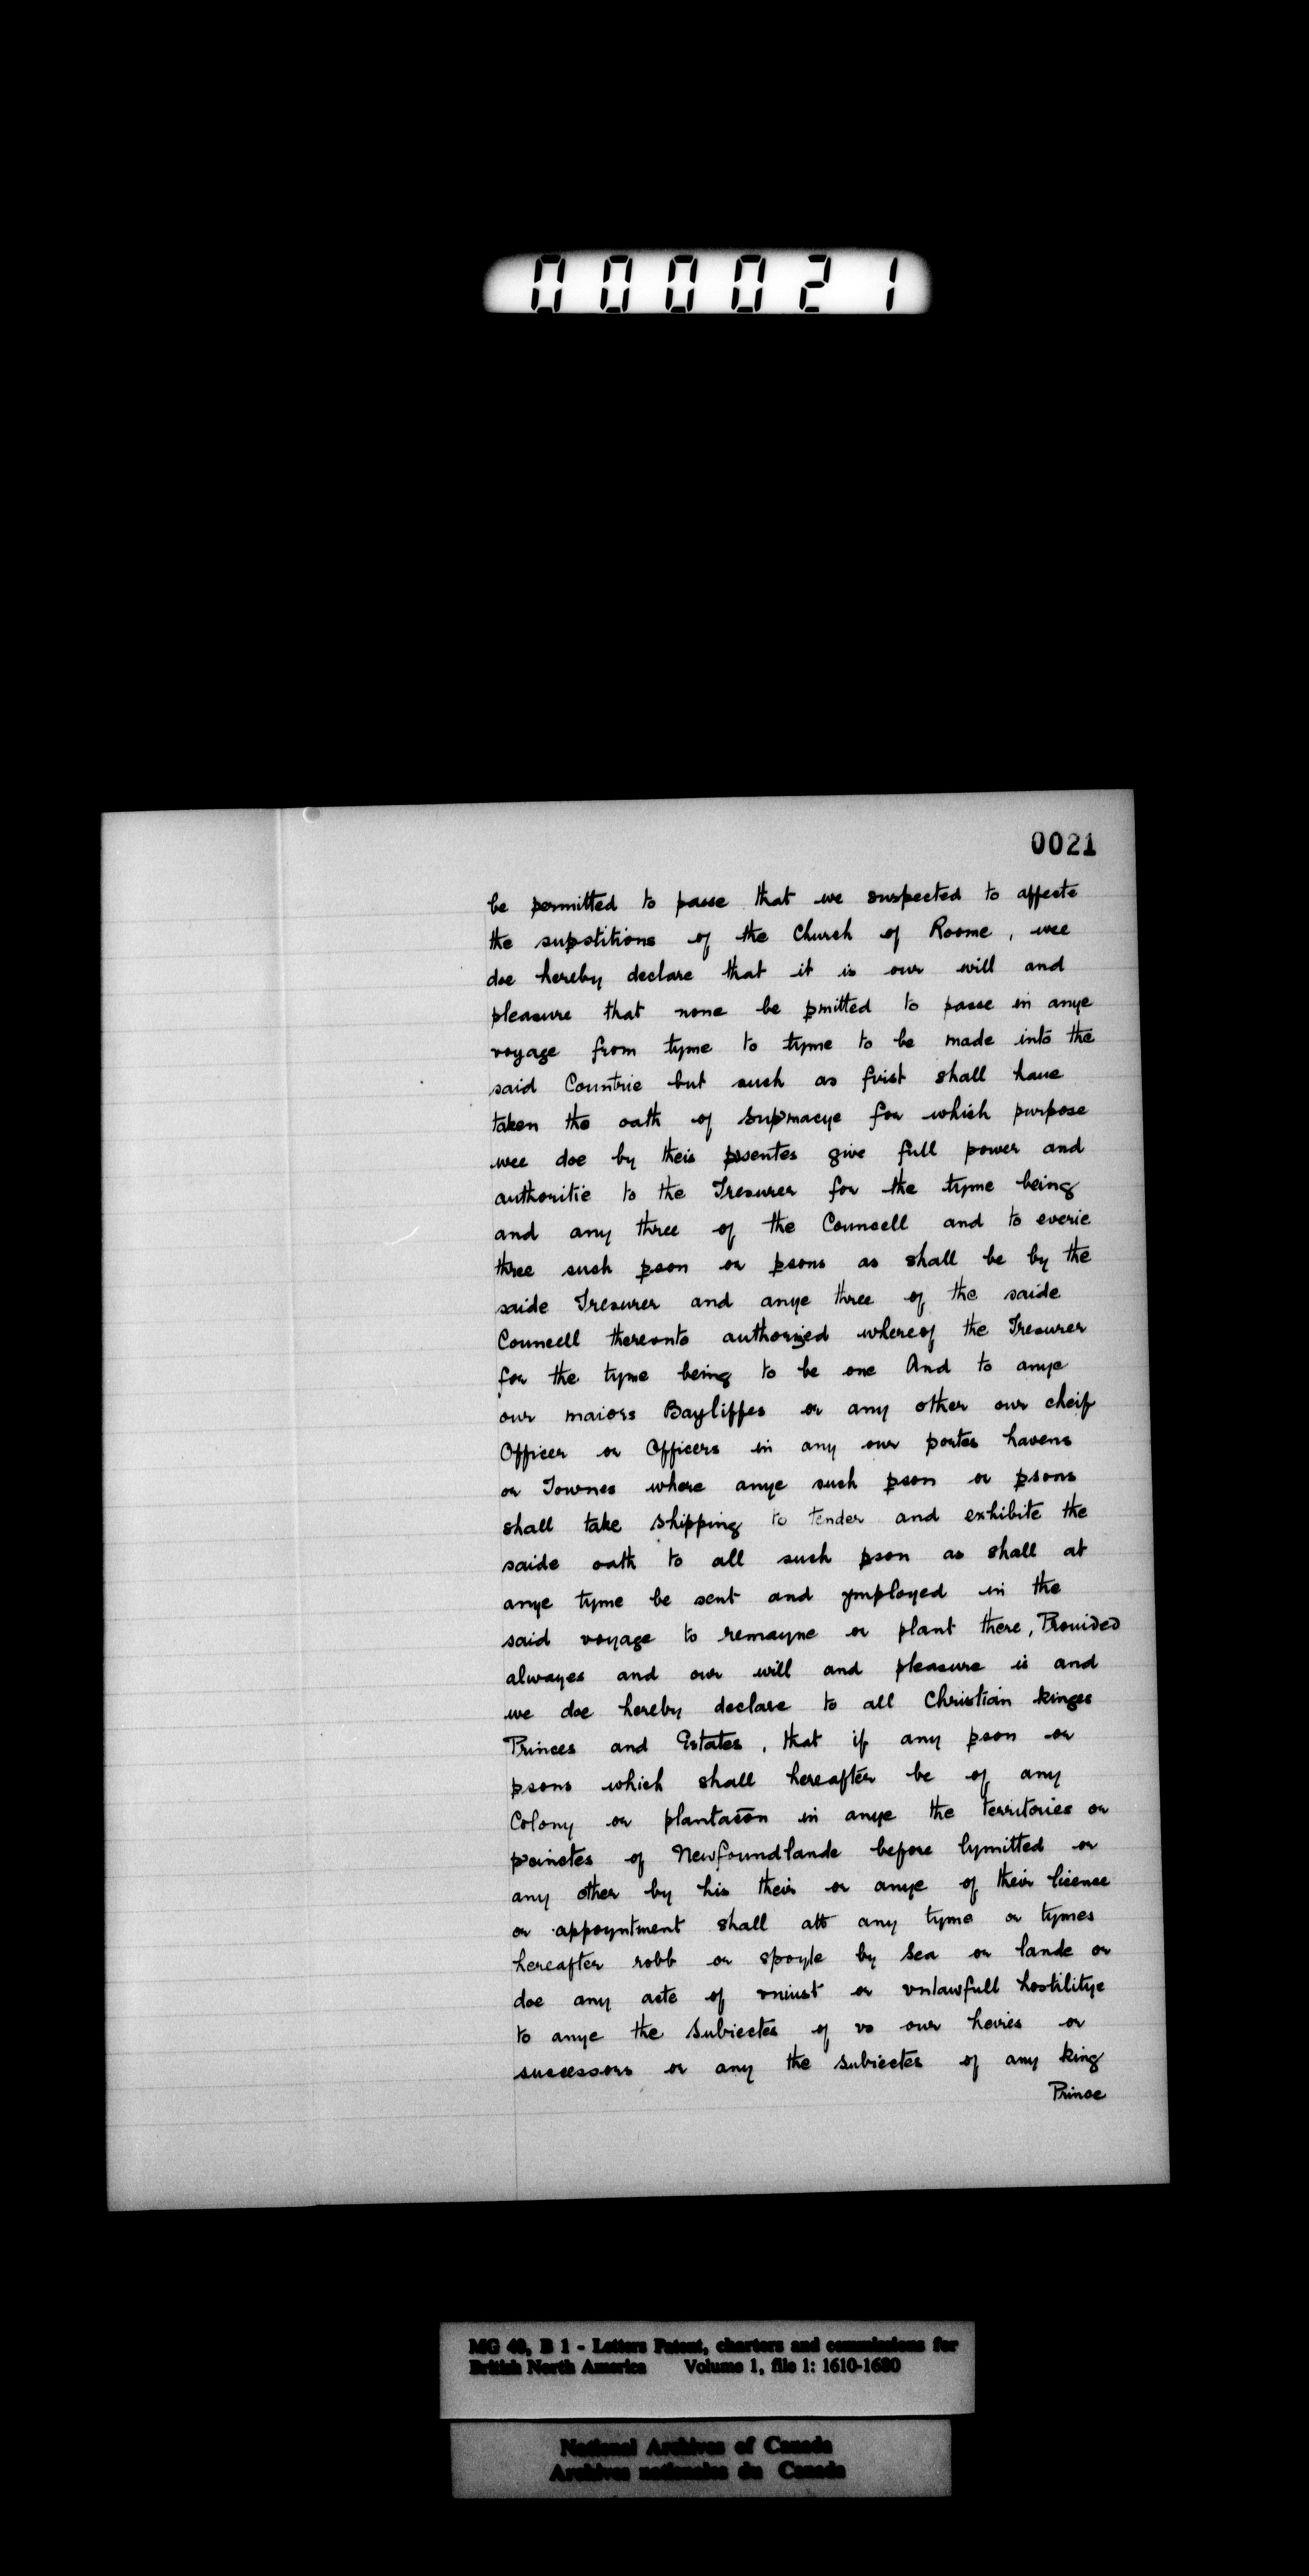 000021
0021
be permitted to passe that we suspected to affecte
the supstitions of the Church of Roome, wee
doe hereby declare that it is our will and
pleasure that none be pmitted to passe in anye
voyage from tyme to tyme to be made into the
said Countrie but such as first shall haue
taken the oath of Supmacye for which purpose
wee doe by theis psentes give full power and
authoritie to the Tresurer for the tyme being
and any three of the Councell and to everie
three such pson or psons as shall be by the
saide Tresurer and anye three of the saide
Councell thereonto authorized whereof the Tresurer
for the tyme being to be one And to anye
our maiors Bayliffes or any other our cheif
Officer or Officers in any our portes havens
or Townes where anye such pson or psons
shall take shipping to tender and exhibite the
saide oath to all such pson as shall at
anye tyme be sent and ymployed in the
said voyage to remayne or plant there, Prouided
alwayes and our will and pleasure is and
we doe hereby declare to all Christian kinges
Princes and Estates, that if any pson or
psons which shall hereafter be of any
Colony or plantacōn in anye the territories or
poinctes of Newfoundlande before lymitted or
any other by his their or anye of their licence
or appoyntment shall att any tyme or tymes
hereafter robb or spoyle by Sea or lande or
doe any acte of vniust or vnlawfull hostilitye
to anye the Subiectes of vs our heires or
successors or any the subiectes of any king
Prince
MG 40, B 1 - Letters Patent, charters and commissions for
British North America Volume 1, file 1: 1610-1680
National Archives of Canada
Archives nationales du Canada